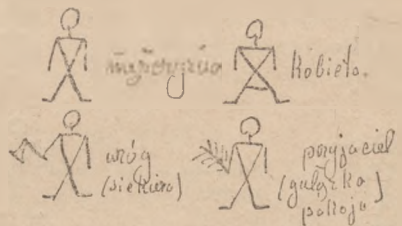 mężczyzna
kobieta.
wróg
(siekiera)
przyjaciel
(gałązka
pokoju)